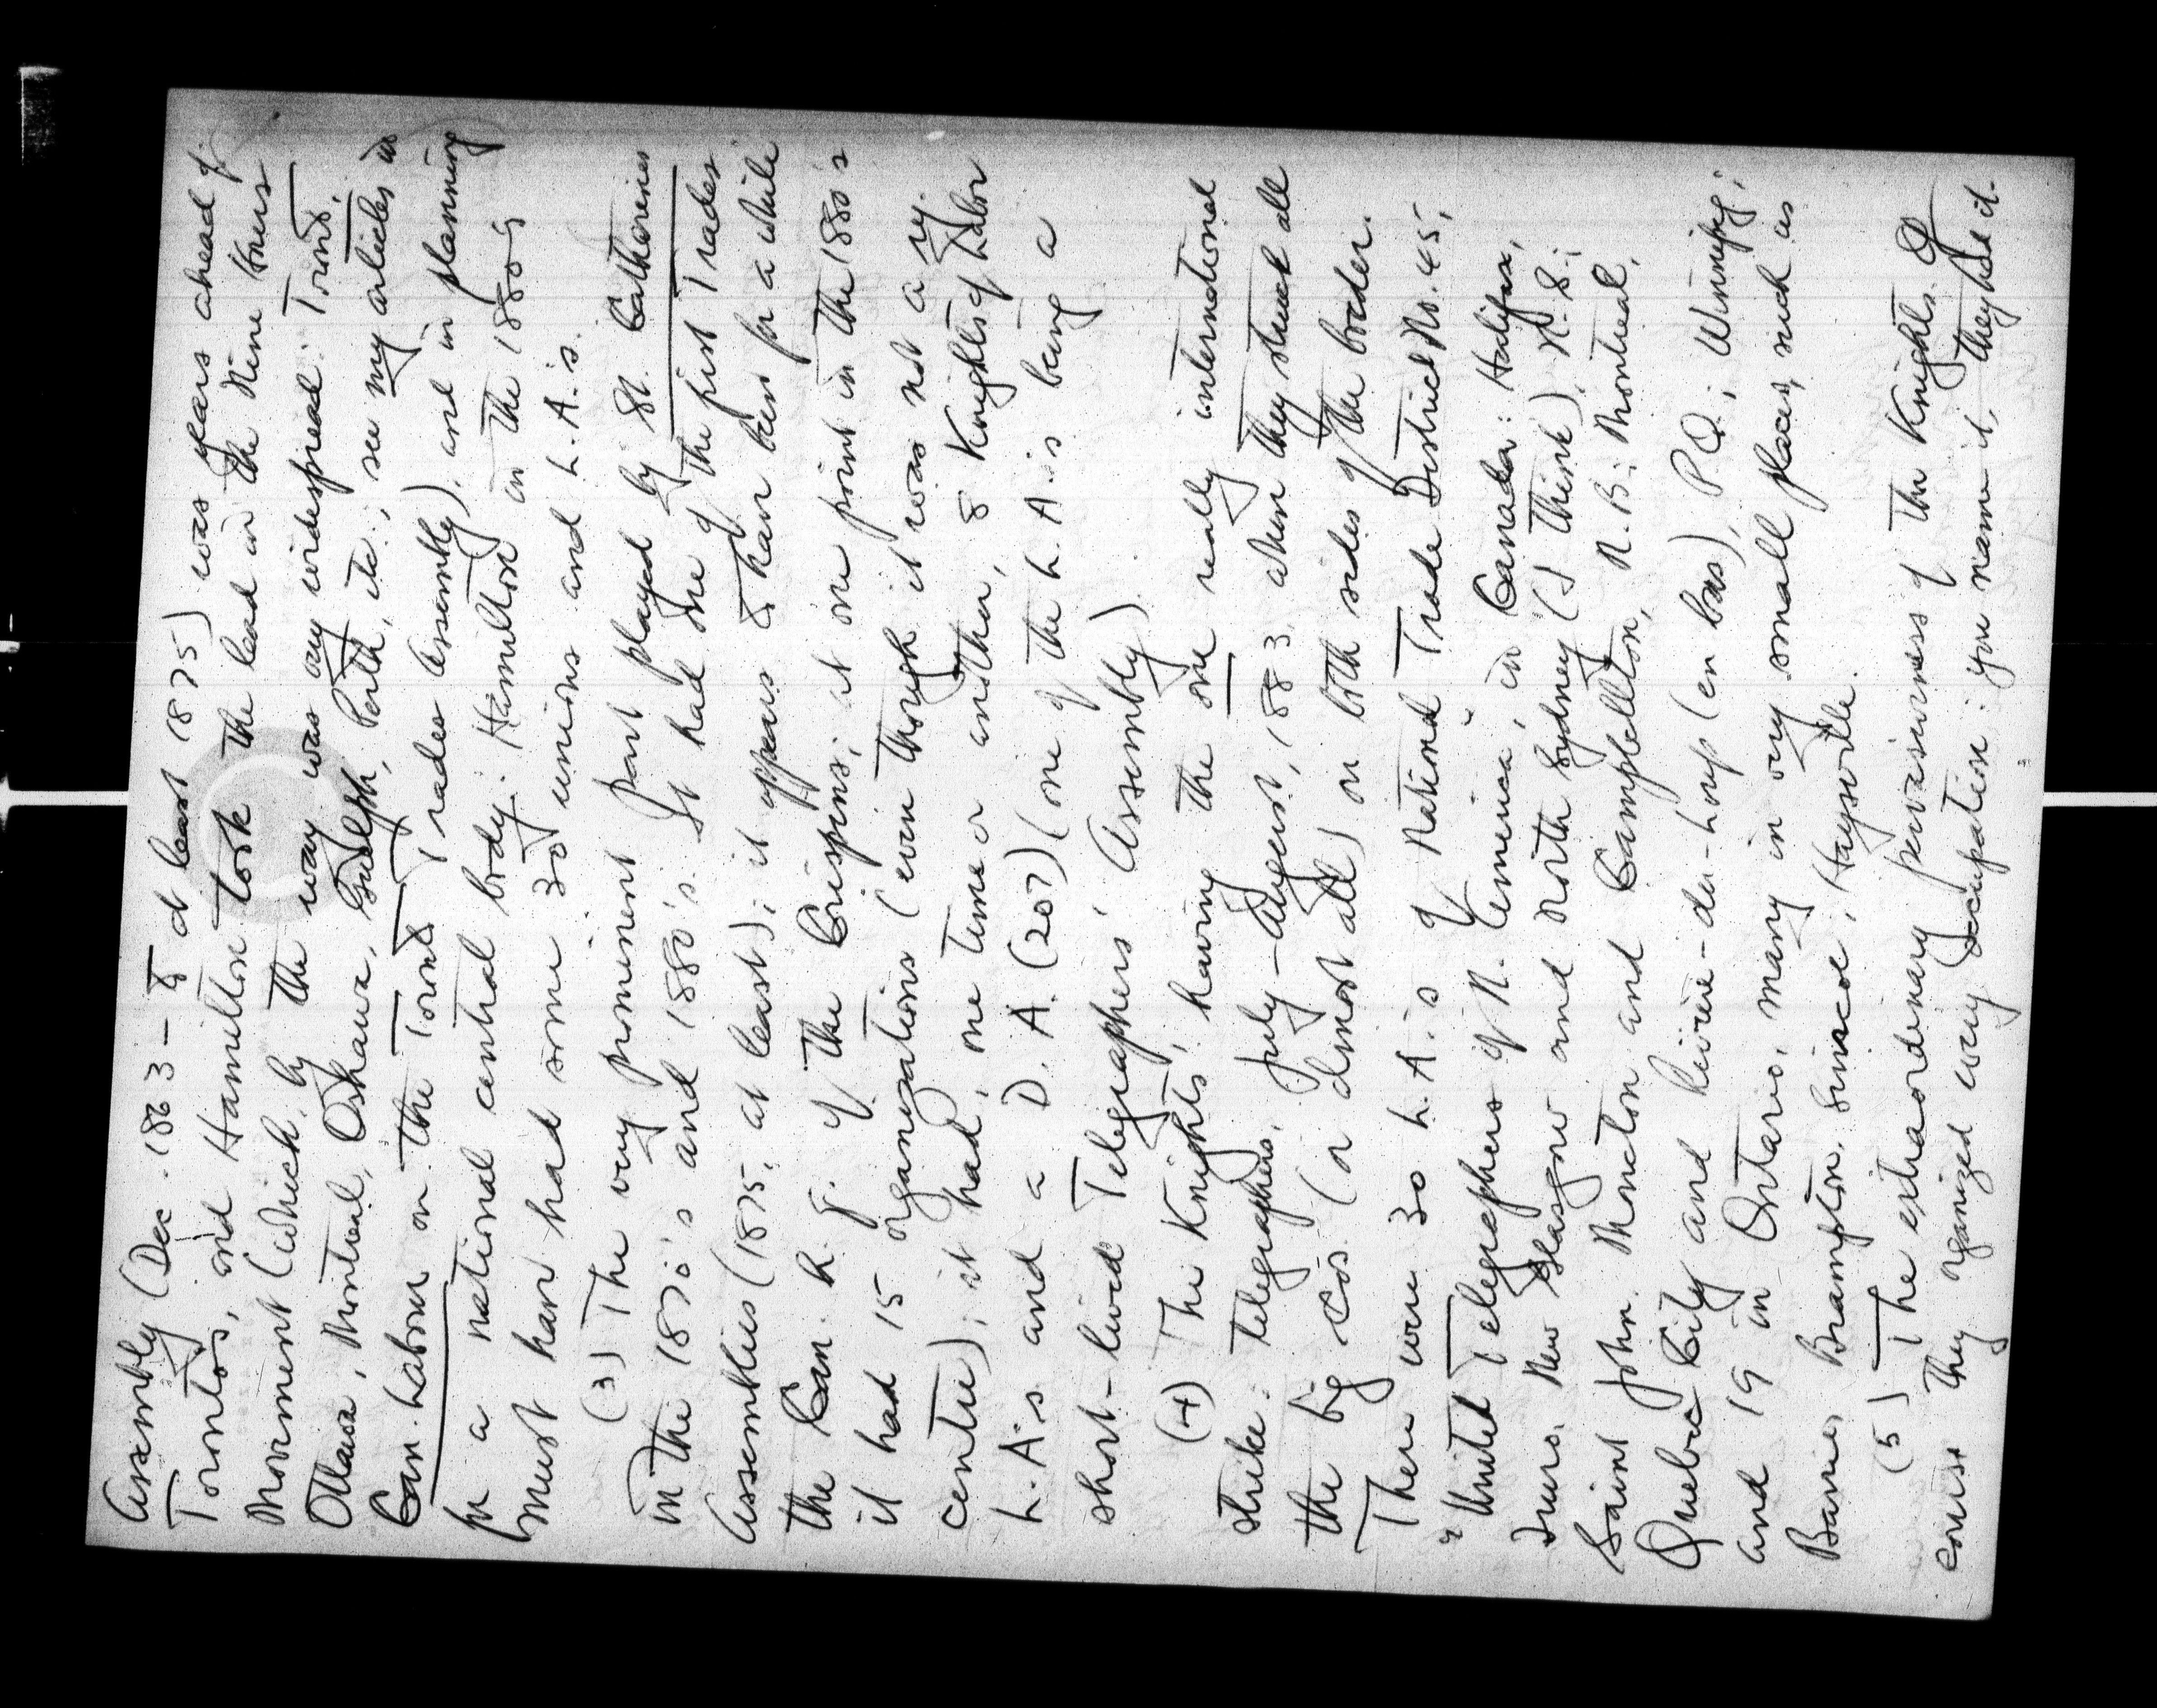 Assembly (Dec. 1863 – to at least 1875) was years ahead of
Toronto's, and Hamilton took the lead in the Nine Hours
Movement (which, by the way was very widespread: Toronto,
Ottawa, Montreal, Oshawa, Guelph, Perth, etc.; see my articles in
Can. Labour on the Toronto Trades Assembly), and in planning
for a national central body. Hamilton in the 1880's
must have had some 30 unions and L.A.'s.
(3) The very prominent part played by St. Catharines
in the 1870's and 1880's. It had one of the first Trades
Assemblies (1875, at least); it appears to have been for a while
the Can. h. q. of the Crispins; at one point in the 1880's
it had 15 organizations (even though it was not a ry.
centre); it had, one time or another, 8 Knights of Labor
L.A.'s and a D.A. (207) (one of the L.A.'s being a
short-lived Telegraphers' Assembly).
(4) The Knights' having the one really international
strike: telegraphers, July–August, 1883, when they struck all
the big cos. (or almost all) on both sides of the border.
There were 30 L.A.'s of National Trade District No. 45,
"United Telegraphers of N. America", in Canada: Halifax,
Truro, New Glasgow and North Sydney (I think), N.S.;
Saint John, Moncton and Campbellton, N.B.; Montreal,
Quebec City and Rivière-du-Loup (en bas), P.Q.; Winnipeg;
and 19 in Ontario, many in very small places, such as
Barrie, Brampton, Simcoe, Haysville.
(5) The extraordinary pervasiveness of the Knights. Of
course they organized every occupation: you name it, they had it.